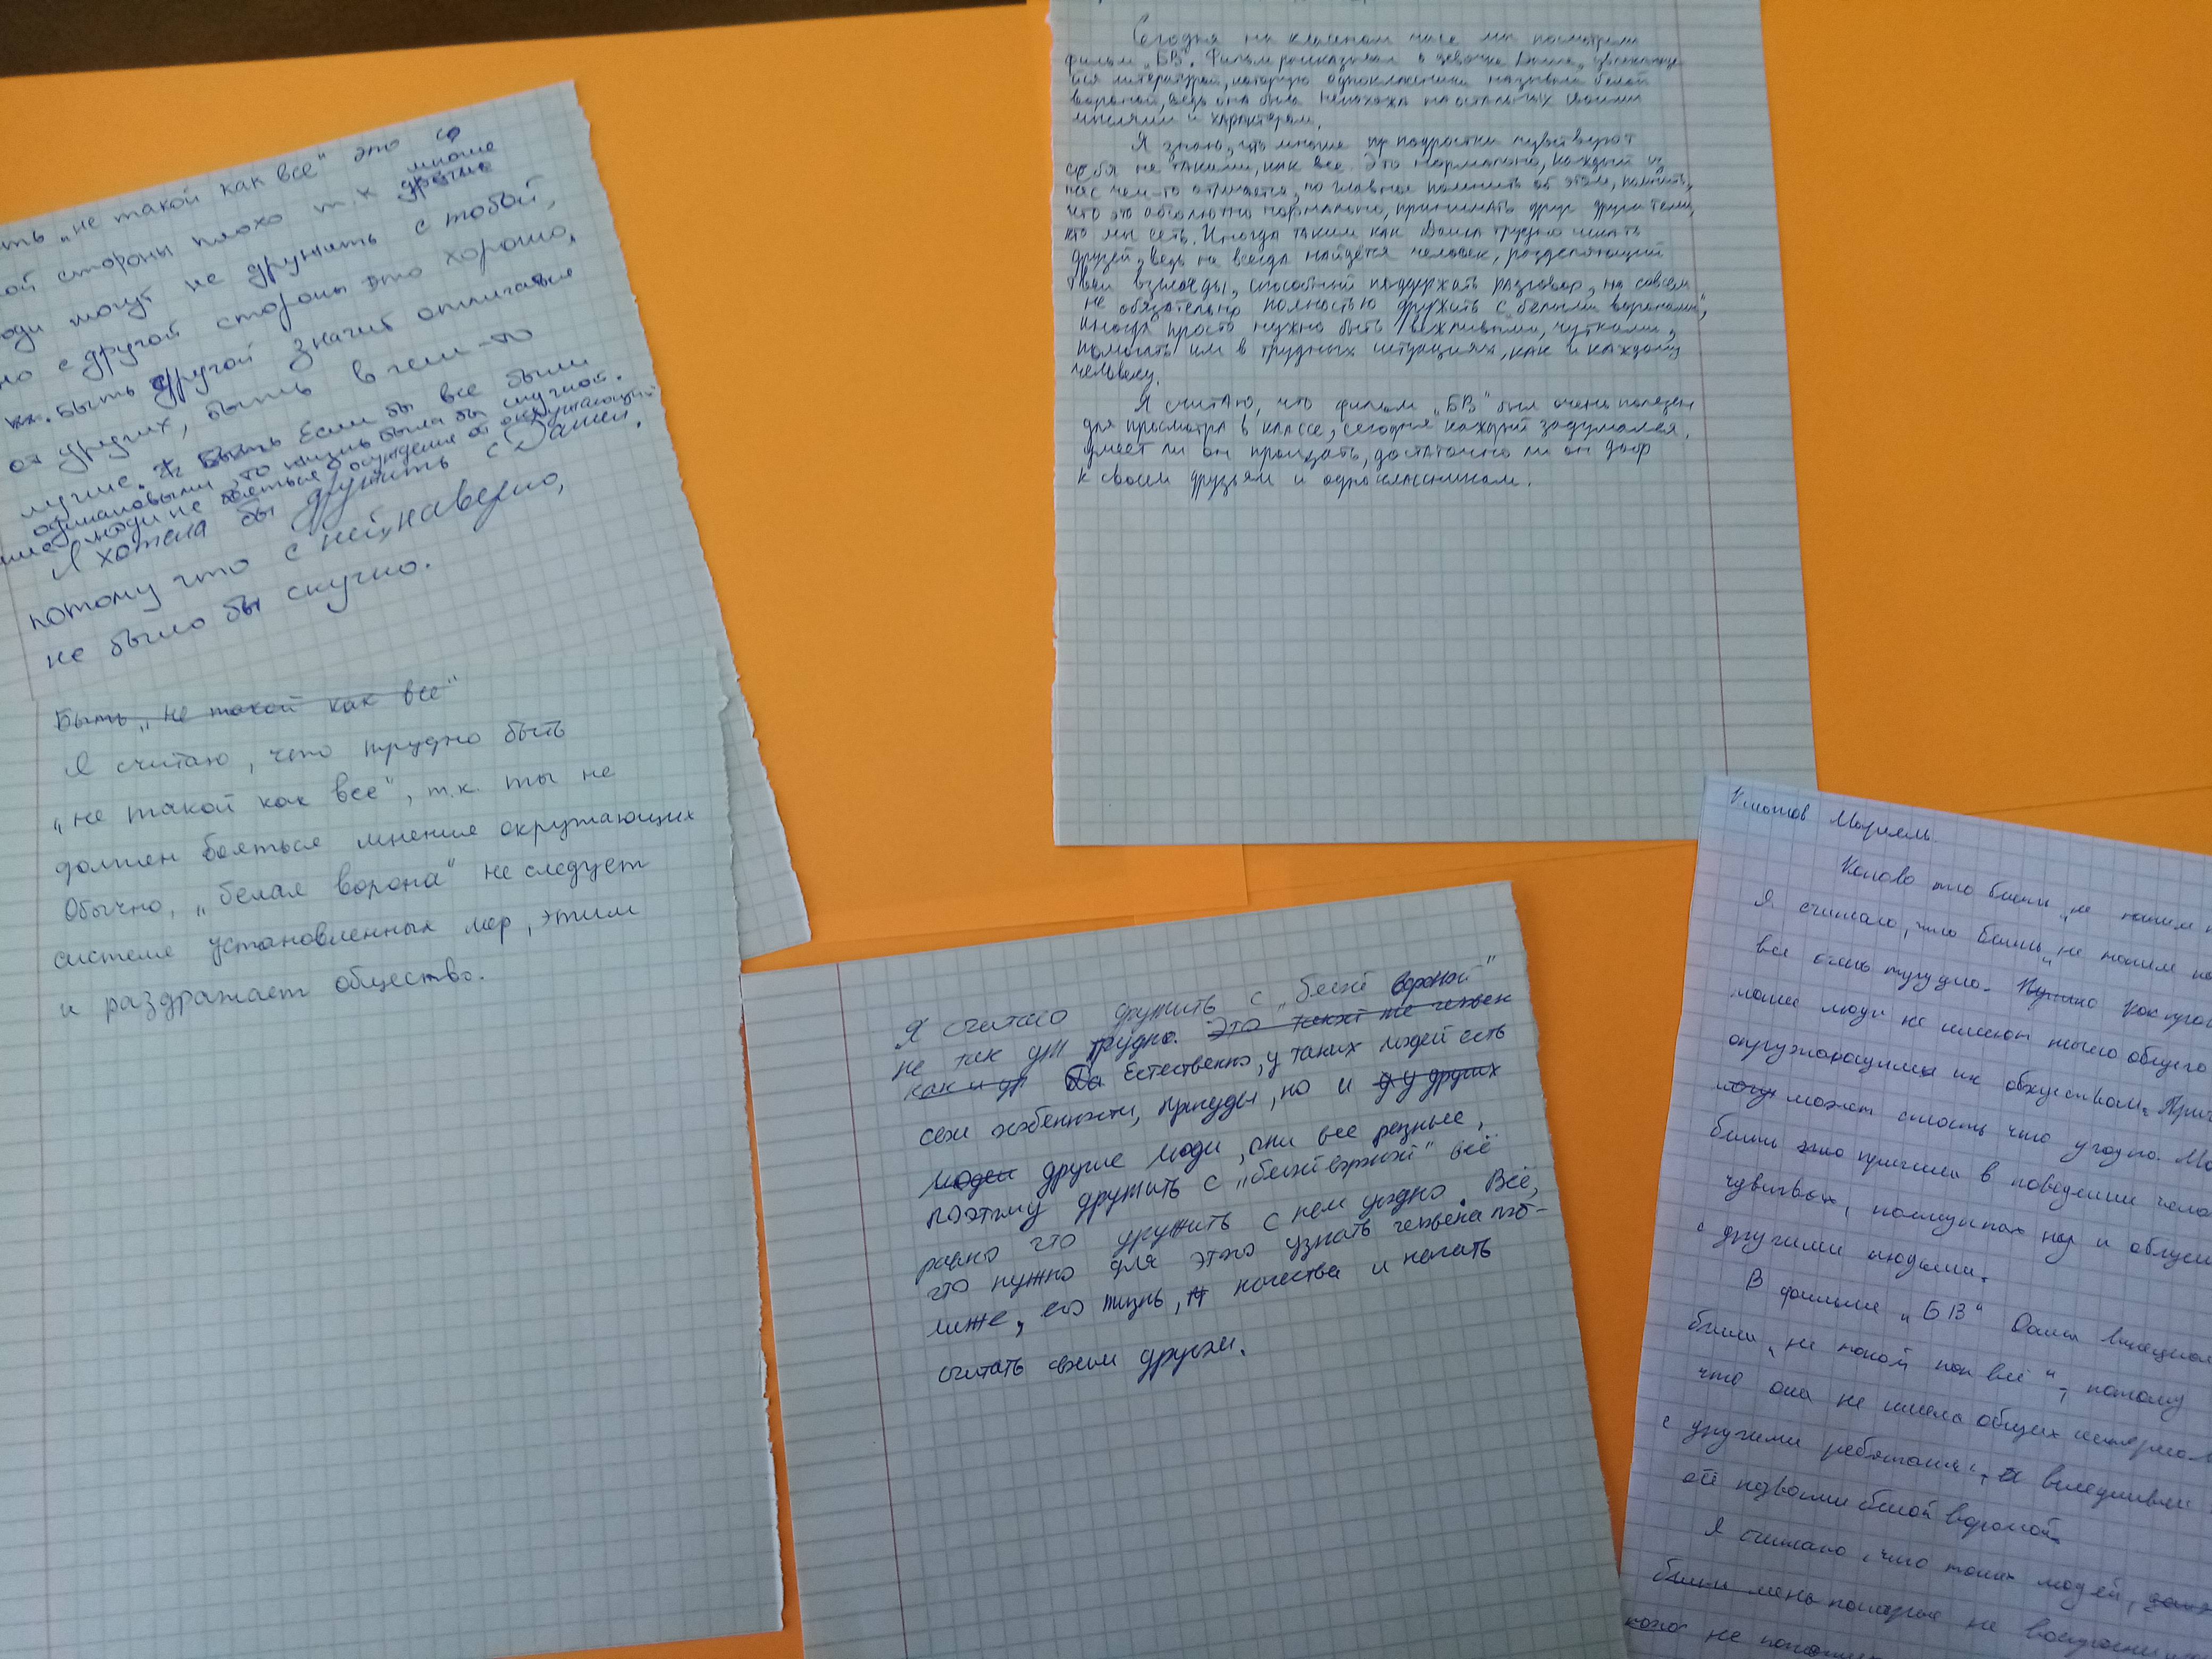 ть „не такой как все" это с
ой стороны плохо т.к многие
юди могут не дружить с тобой,
но с другой стороны это хорошо,
Быть другой значит отличаться
от других, быть в чем-то
лучше. Если бы все были
одинаковыми, то жизнь была бы скучной.
люди не бояться осуждение от окружающий
Я хотела бы дружить с Дашей,
потому что с ней, наверно,
не было бы скучно.
Быть „не такой как все"
Я считаю, что трудно быть
„не такой как все", т.к. ты не
должен бояться мнение окружающих
Обычно, „белая ворона" не следует
системе установленных мер, этим
и раздражает общество.
Сегодня на классном часе мы посмотрели
фильм „БВ". Фильм рассказывал о девочке Даше, увлекающе
йся литературой, которую одноклассники называли белой
вороной, ведь она была непохожа на остальных своими
мыслями и характером.
Я знаю, что многие подростки чувствуют
себя не такими, как все. Это нормально, каждый из
нас чем-то отличается, но главное помнить об этом, помнить,
что это абсолютно нормально, принимать друг друга теми,
кто мы есть. Иногда таким как Даша трудно искать
друзей, ведь не всегда найдётся человек, разделяющий
твои взгляды, способный поддержать разговор, но совсем
не обязательно полностью дружить с „белыми воронами",
иногда просто нужно быть вежливыми, чуткими,
помогать им в трудных ситуациях, как и каждому
человеку.
Я считаю, что фильм „БВ" был очень полезен
для просмотра в классе, сегодня каждый задумался,
умеет ли он прощать, достаточно ли он добр
к своим друзьям и одноклассникам.
Я считаю дружить с „белой вороной"
не так уж трудно. Это такой же человек
как и др Да Естественно, у таких людей есть
свои особенности, причуды, но и у других
людей другие люди, они все разные,
поэтому дружить с „белой вороной" всё
равно что дружить с кем угодно. Всё,
что нужно для этого узнать человека поб-
лиже, его жизнь, качества и начать
считать своим другом.
Каково это быть „не таким к
Я считаю, что быть „не таким ка
все очень трудно.
такие люди не имеют ничего общего
окружающими их обществом. При
может стать что угодно. Мо
быть это причина в поведении чело
чувствах, поступках и общен
с другими людьми.
В фильме „БВ" Даша
была „не такой как все", потому
что она не имела общих интересо
с другими ребятами,
её назвали белой вороной.
Я считаю, что таких людей,